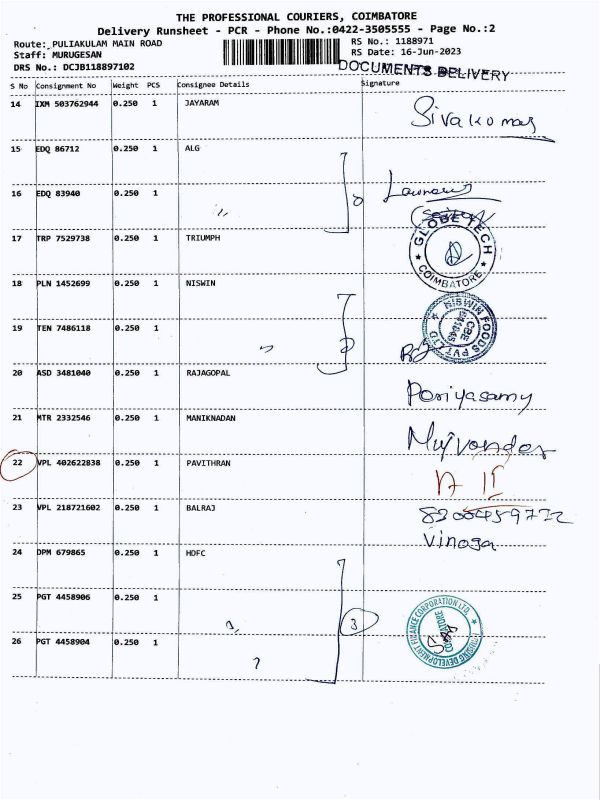 THE PROFESSIONAL COURIERS, COIMBATORE
Delivery Runsheet - PCR - Phone No.:0422-3505555 - Page No.:2
Route: PULIAKULAM MAIN ROAD
RS No.: 1188971
Staff: MURUGESAN
RS Date: 16-Jun-2023
DRS No.: DCJB118897102
DOCUMENTS DELIVERY
S No Consignment No Weight PCS Consignee Details Signature
14 IXM 503762944 0.250 1 JAYARAM
Sivakumar
15 EDQ 86712 0.250 1 ALG
16 EDQ 83940 0.250 1
GLOBE TECH
COIMBATORE
17 TRP 7529738 0.250 1 TRIUMPH
18 PLN 1452699 0.250 1 NISWIN
NISWIN FOODS PVT LTD
CBE
641045
19 TEN 7486118 0.250 1
20 ASD 3481040 0.250 1 RAJAGOPAL
Poriyasamy
21 MTR 2332546 0.250 1 MANIKNADAN
22 VPL 402622838 0.250 1 PAVITHRAN
23 VPL 218721602 0.250 1 BALRAJ
Vinoga
24 DPM 679865 0.250 1 HDFC
25 PGT 4458906 0.250 1
3
HOUSING DEVELOPMENT FINANCE CORPORATION LTD.
COIMBATORE
26 PGT 4458904 0.250 1